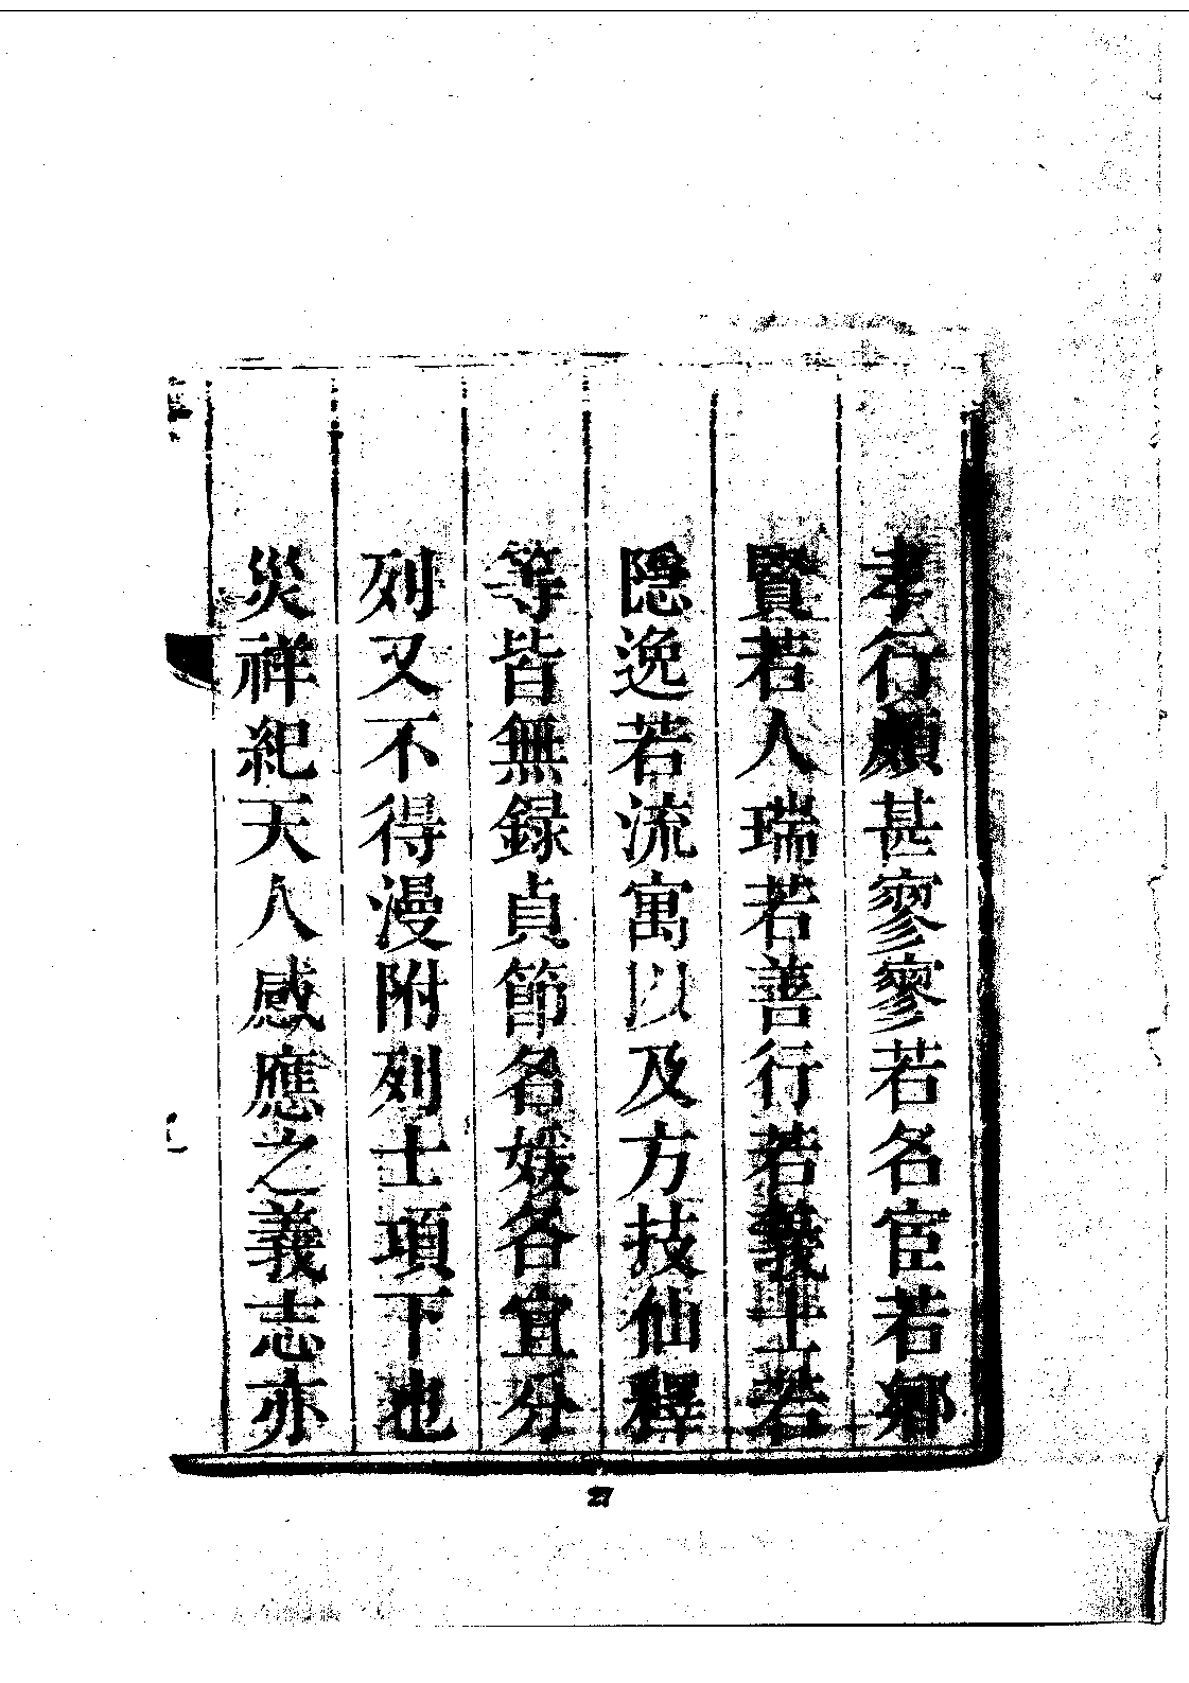 孝行頗甚寥寥若名宦若鄉
賢若人瑞若善行若義士若
隱逸若流寓以及方技仙釋
等皆無録貞節名媛各宜分
列又不得漫附列士項下也
災祥紀天人感應之義志亦
27